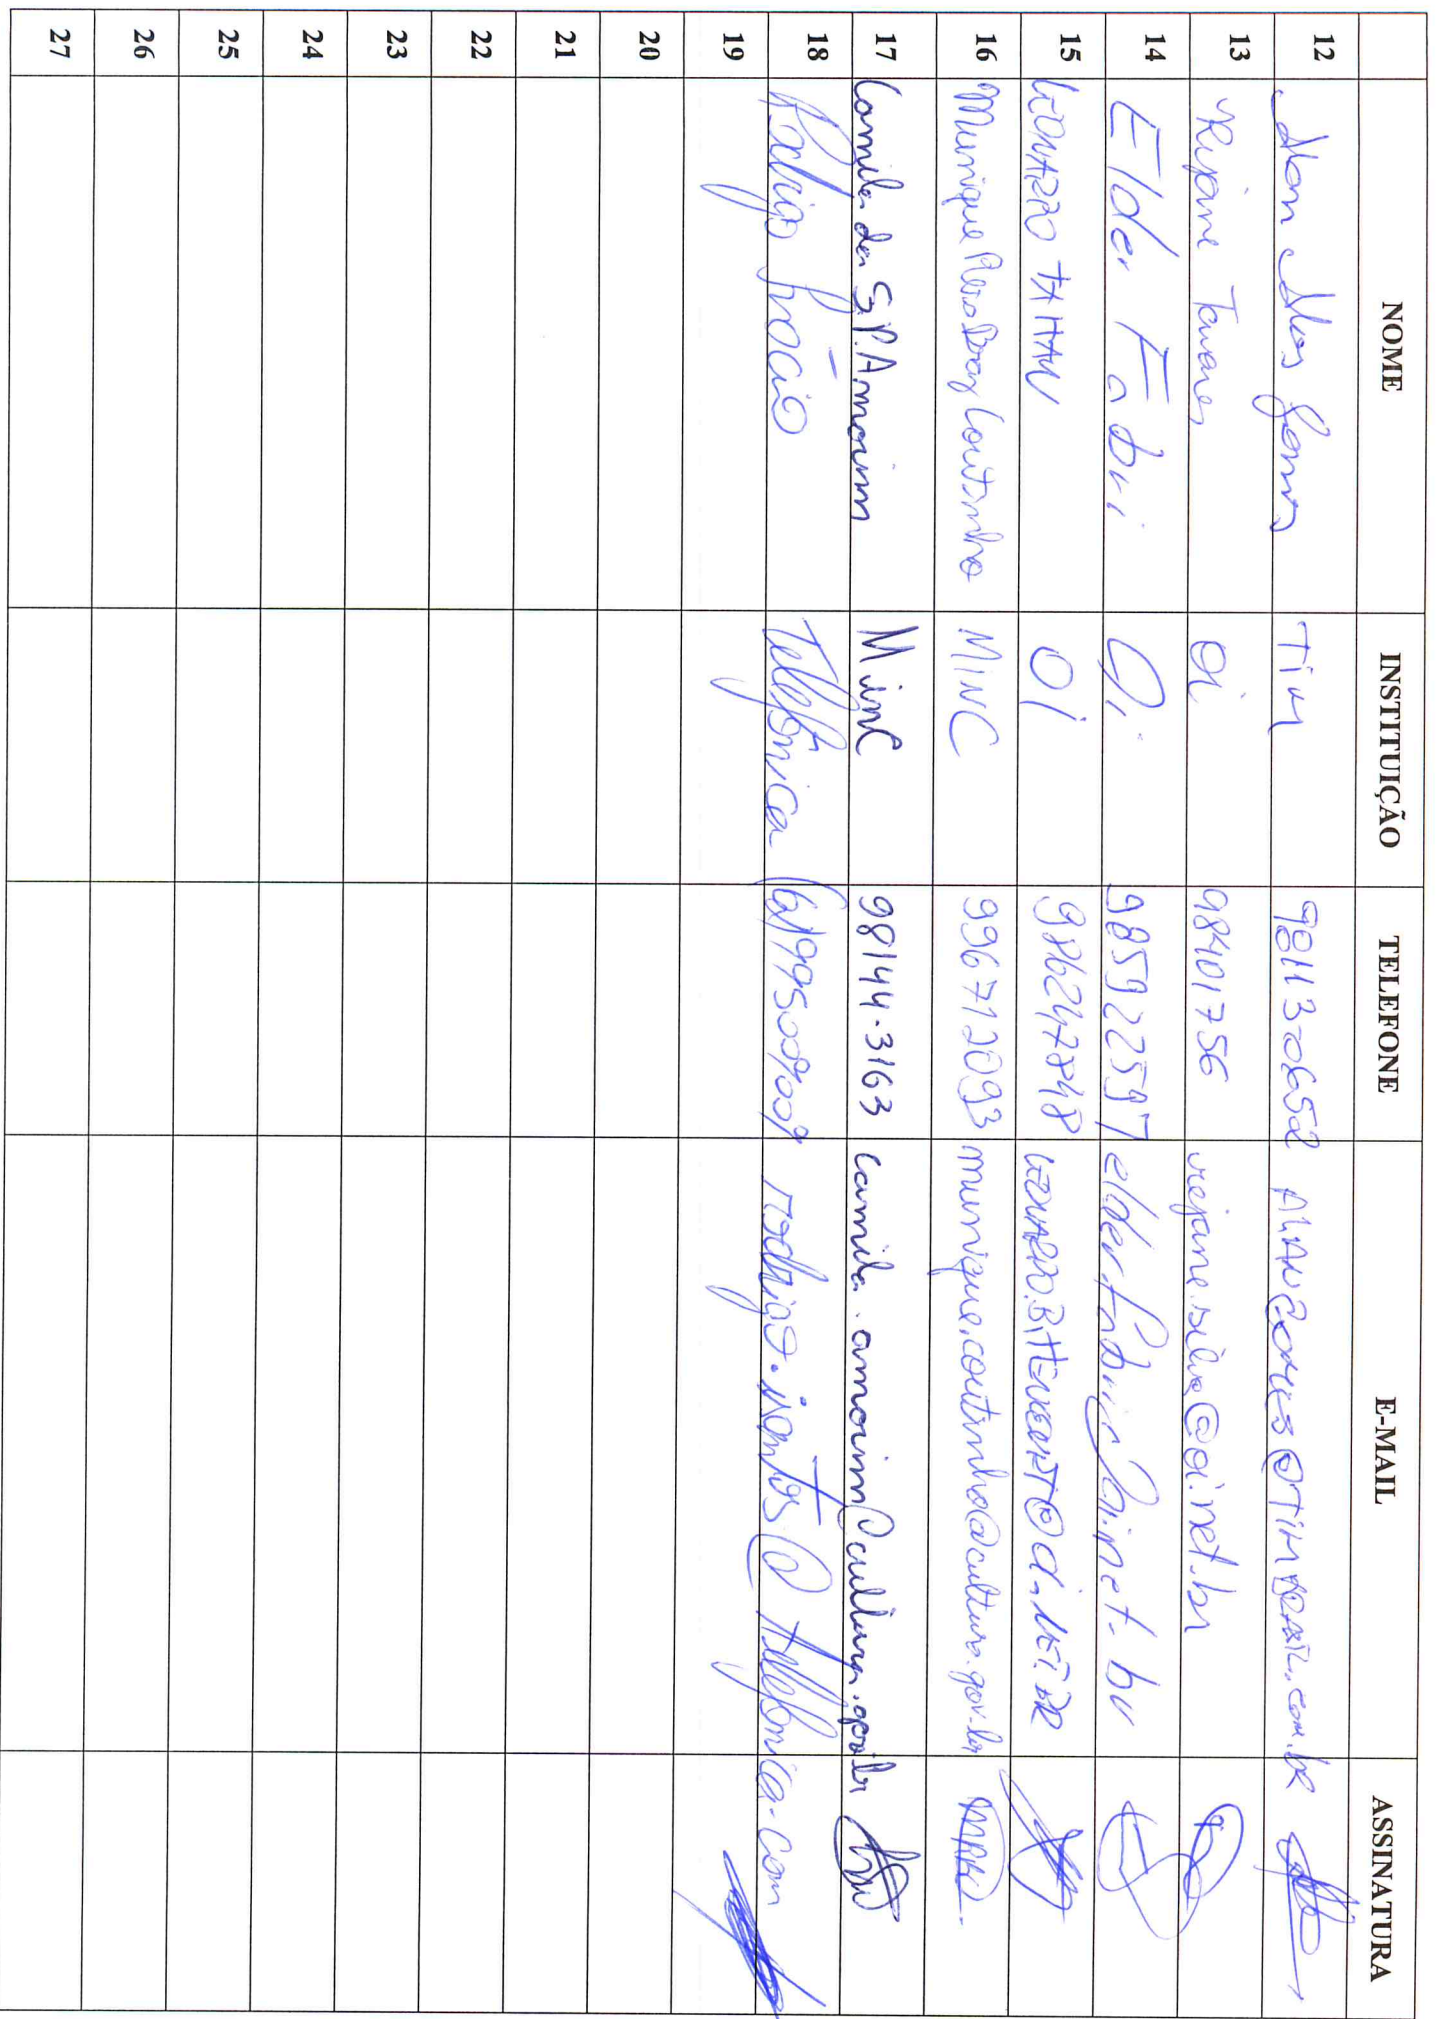 NOME INSTITUIÇÃO TELEFONE E-MAIL ASSINATURA
12 Alan Gomes Tim 98113-0652 ALANGOMES@TIMBRASIL.COM.BR
13 Rejane Tavares Oi 98401756 rejane.silva@oi.net.br
14 Elder Fabri Oi 985922597 elderfabri@oi.net.br
15 LEONARDO TAHAN Oi 986247848 LEONARDO.BITTENCOURT@OI.NET.BR
16 Munique Coutinho MINC 996712093 munique.coutinho@cultura.gov.br
17 Camila da S. P. Amorim MinC 98144-3163 camila.amorim@cultura.gov.br
18 Rodrigo Telefônica rodrigo.santos@telefonica.com
19
20
21
22
23
24
25
26
27